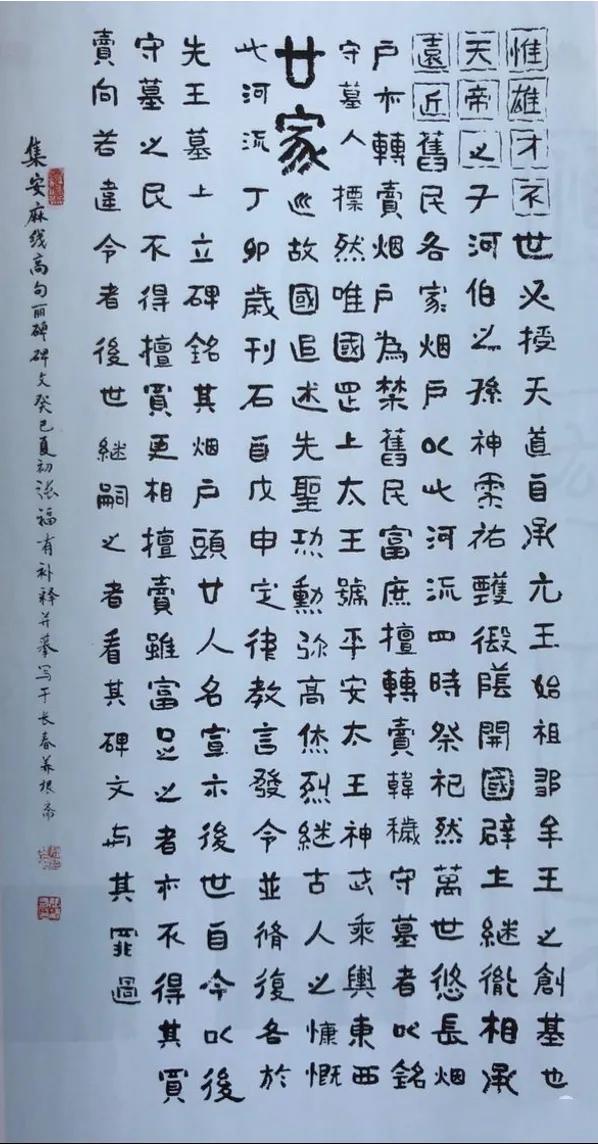 惟雄才不世必授天道自承元王始祖鄒牟王之創基也
天帝之子河伯之孫神靈祐護蔽蔭開國辟土継胤相承
遠近舊民各家烟戶以此河流四時祭祀然萬世悠長烟
戶亦轉賣烟戶為禁舊民富庶擅轉賣韓穢守墓者以銘
守墓人摽然唯國罡上太王號平安太王神武乘輿東西
廿家巡故國追述先聖功勳弥高烋烈継古人之慷慨
此河流丁卯歲刊石自戊申定律教言發令並脩復各於
先王墓上立碑銘其烟戶頭廿人名宣示後世自今以後
守墓之民不得擅買更相擅賣雖富足之者亦不得其買
賣向若違令者後世継嗣之者看其碑文与其罪過
集安麻线高句丽碑碑文癸巳夏初张福有补释并摹写于长春养根斋